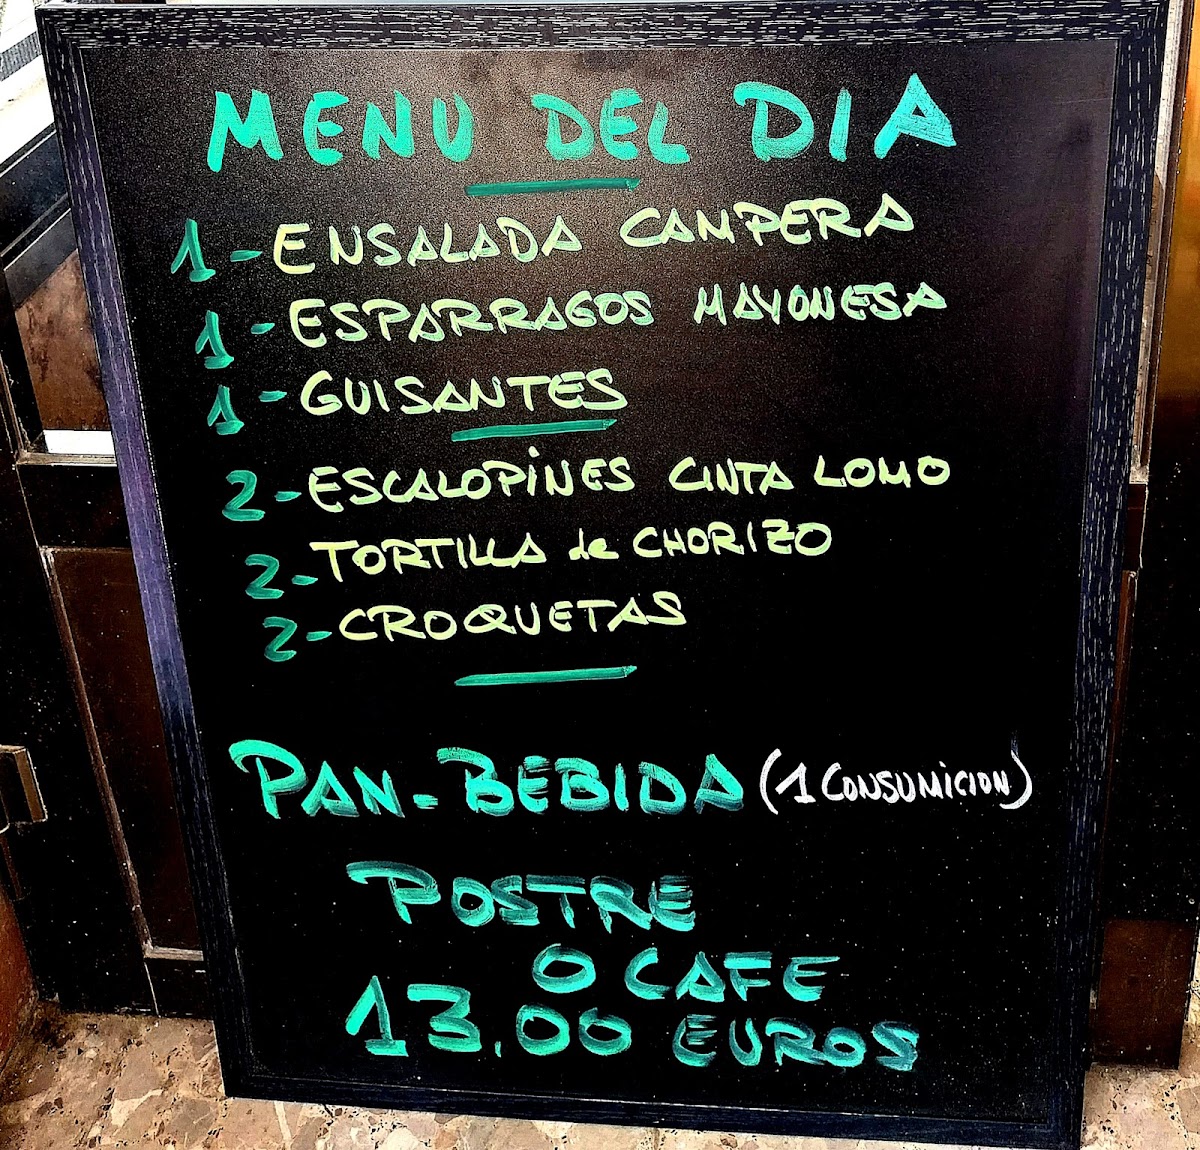 MENU DEL DIA
1-ENSALADA CAMPERA
1-ESPARRAGOS MAYONESA
1-GUISANTES
2-ESCALOPiNES CINTA LOMO
2-TORTILLA de CHORIZO
2-CROQUETAS
PAN-BEBIDA (1 CONSUMICION)
POSTRE
O CAFE
13.00 EUROS